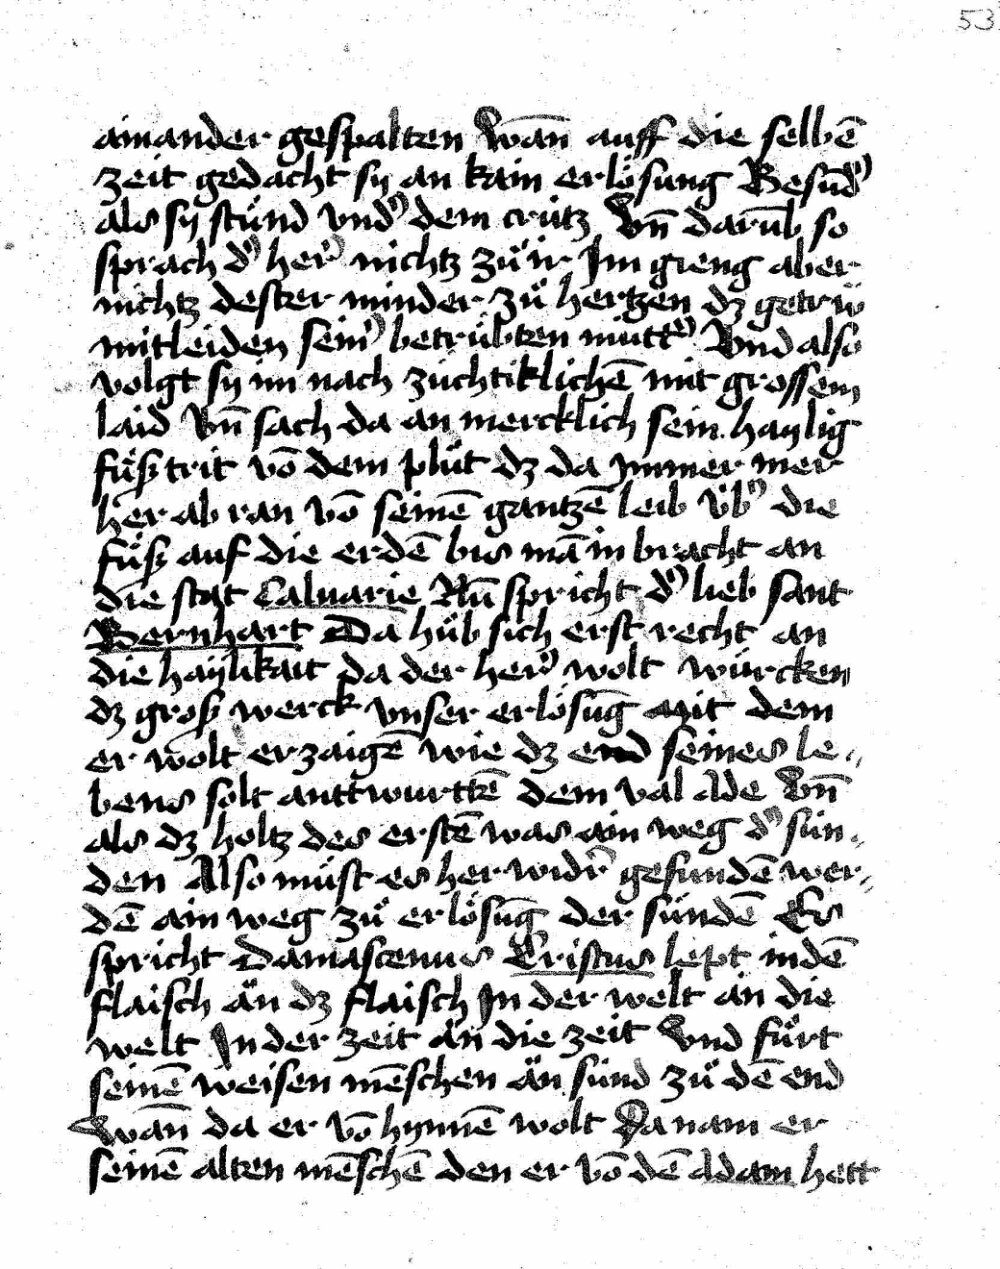 53
ainander gespalten Wañ auff die selbē
zeit gedacht sy an kain erlösung Besūdˀ
als sy stůnd vndˀ dem crütz Vn̄ darūb so
sprach dˀ herˀ nichtz zů ir Im gieng aber
nichtz dester minder zů hertzen dz getrw̋
mitleiden seinˀ betrübten můttˀ Vnd also
volgt sy im nach züchtiklichē mit grossem
laid Vn̄ sach da an mercklich sein haylig
fůßtrit vō dem plůt dz da ymmer mer
her ab ran vō seinē gantzē leib v̈bˀ die
fůß auf die erdē bis mā in bracht an
die stat Caluarie Nū spricht dˀ lieb sant
Bernhart Da hůb sich erst recht an
die haylikait da der herˀ wolt würcken
dz groß werck vnser erlösūg Mit dem
er wolt erzaigē wie dz end seines le⸗
bens solt anttwurttē dem val Ade Vn̄
als dz holtz des erstē was ain weg dˀ sün⸗
den Also můst es her widˀ gefundē wer⸗
dē ain weg zů erlösūg der sündē Es
spricht Damascenus Cristus lept in dē
flaisch än dz flaisch In der welt än die
welt In der zeit än die zeit Vnd fůrt
seinē weisen mēschen än sünd zů dē end
Wañ da er vō hynnē wolt Da nam er
seinē alten mēschē den er vō dē Adam hett